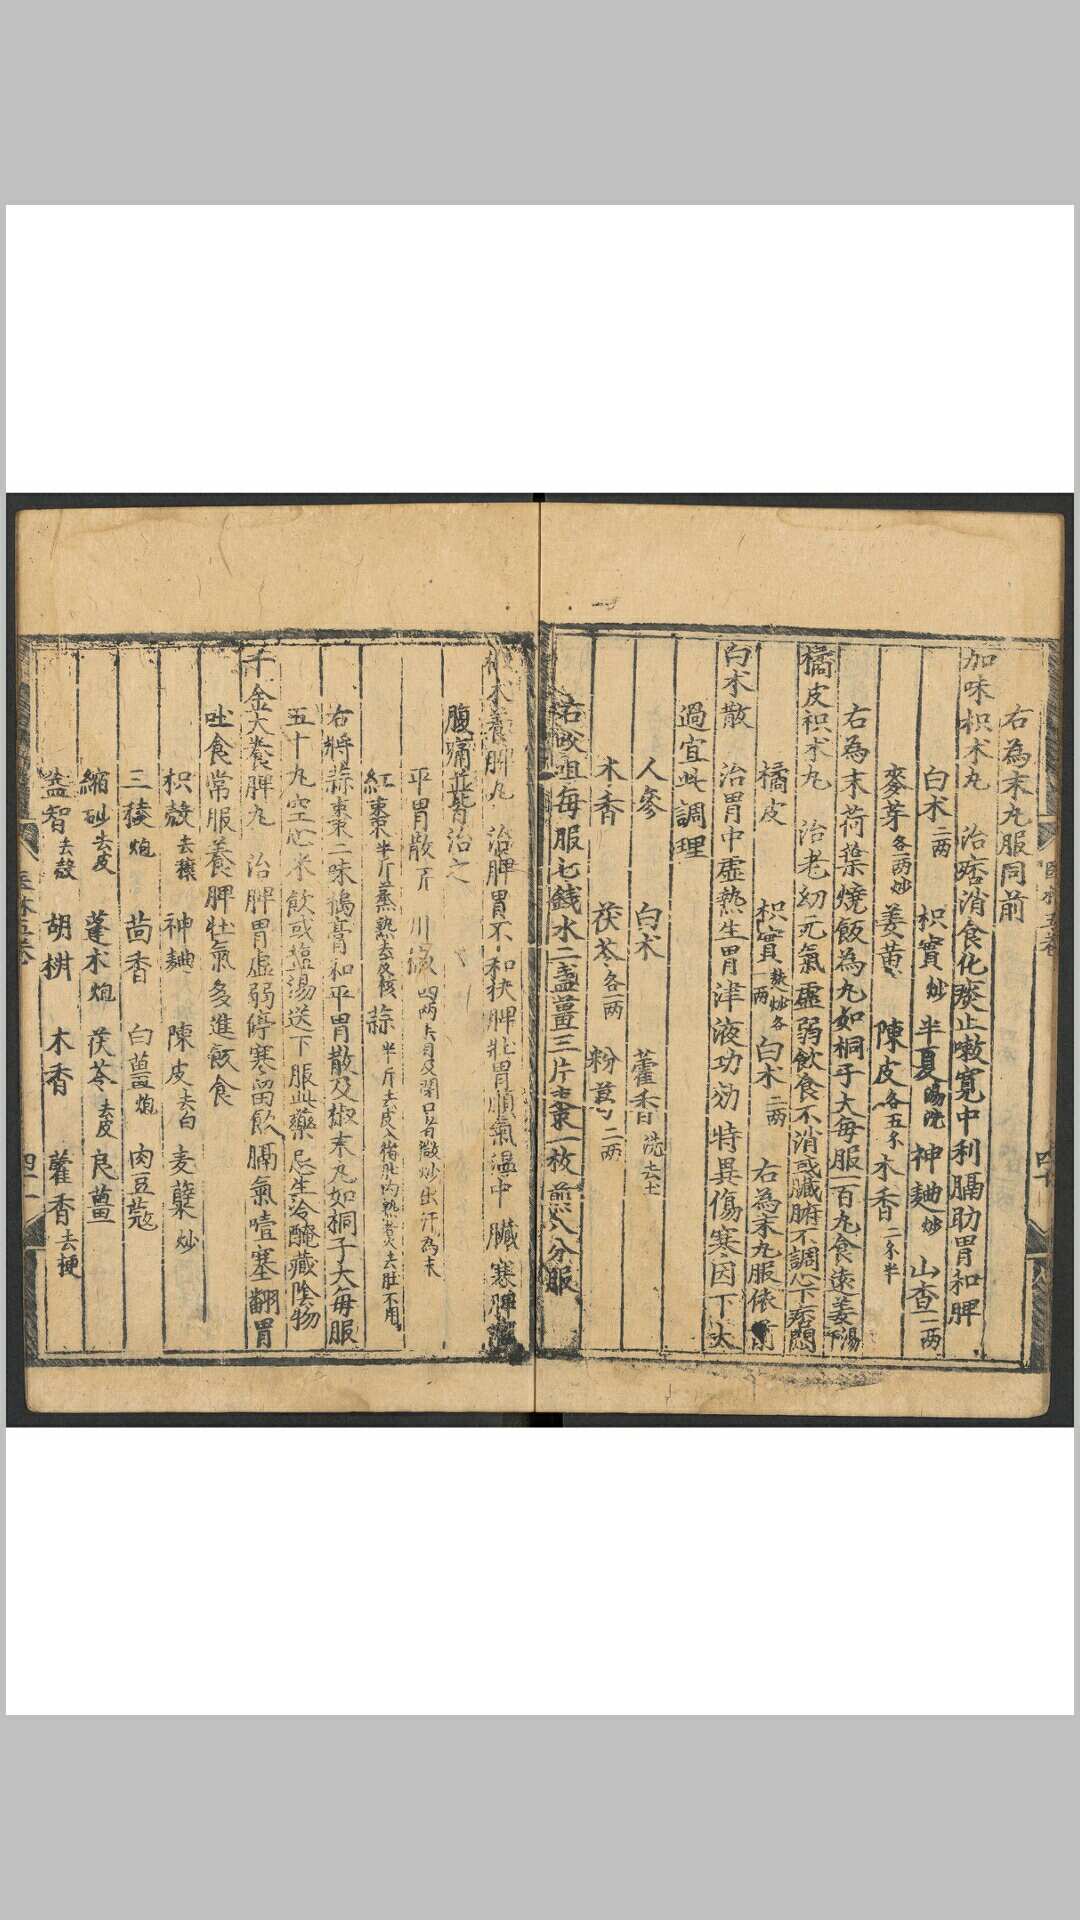 右為末丸服同前
加味枳朮丸　治痞消食化痰止嗽寬中利膈助胃和脾
白朮二兩　枳實炒　半夏湯洗　神麯炒　山查一兩
麥芽各二兩炒　姜黃　陳皮各五錢　木香二錢半
右為末荷葉燒飯為丸如桐子大每服一百丸食遠姜湯下
橘皮枳朮丸　治老幼元氣虛弱飲食不消或臟腑不調心下痞悶
橘皮　枳實麩炒各一兩　白朮二兩　右為末丸服依前
白朮散　治胃中虛熱生胃津液功効特異傷寒因下太
過宜此調理
人參　白朮　藿香洗去土
木香　茯苓各一兩　粉葛二兩
右㕮咀每服七錢水二盞薑三片棗一枚煎八分服
養脾丸　治脾胃不和快脾壯胃順氣溫中臟寒脾
腹痛並皆治之
平胃散一斤　川椒四兩去目及閉口者微炒出汗為末
紅棗半斤蒸熟去皮核　蒜半斤去皮入猪肚內熟煮去肚不用
右將蒜棗二味搗膏和平胃散及椒末丸如桐子大每服
五十丸空心米飲或塩湯送下服此藥忌生冷醃藏陰物
千金大養脾丸　治脾胃虛弱停寒留飲膈氣噎塞翻胃
吐食常服養脾壯氣多進飯食
枳殼去穰　神麯　陳皮去白　麦蘗炒
三稜炮　茴香　白薑炮　肉豆蔻
縮砂去皮　蓬朮炮　茯苓去皮　良薑
益智去殼　胡椒　木香　藿香去梗